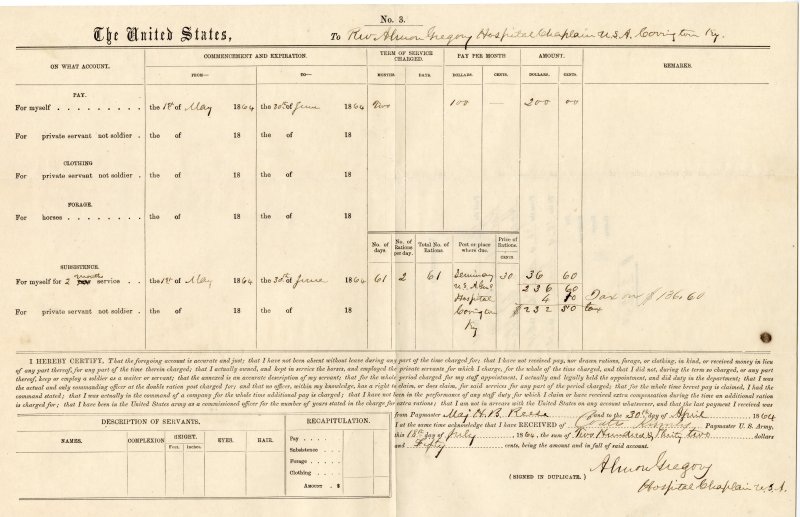 No. 3.
The United States, To Rev Almon Gregory Hospital Chaplain U.S.A. Covington Ky.
ON WHAT ACCOUNT. COMMENCEMENT AND EXPIRATION. TERM OF SERVICE CHARGED. PAY PER MONTH AMOUNT. REMARKS.
FROM— TO— MONTHS. DAYS. DOLLARS. CENTS. DOLLARS. CENTS.
PAY.
For myself . . . . . . . . . the 1st of May 1864 the 30th of June 1864 two 100 — 200 00
For private servant not soldier . the of 18 the of 18
CLOTHING
For private servant not soldier . the of 18 the of 18
FORAGE.
For horses . . . . . . . . . the of 18 the of 18
No. of days. No. of Rations per day. Total No. of Rations. Post or place where due. Price of Rations. CENTS.
SUBSISTENCE.
For myself for 2 months service . . the 1st of May 1864 the 30th of June 1864 61 2 61 Seminary 30 36 60
U.S.A. Genl 236 60
Hospital 4 10 Tax on $136.60
For private servant not soldier . the of 18 the of 18 Covington $232 50 tax
Ky
I HEREBY CERTIFY, That the foregoing account is accurate and just; that I have not been absent without leave during any part of the time charged for; that I have not received pay, nor drawn rations, forage, or clothing, in kind, or received money in lieu
of any part thereof, for any part of the time therein charged; that I actually owned, and kept in service the horses, and employed the private servants for which I charge, for the whole of the time charged, and that I did not, during the term so charged, or any part
thereof, keep or employ a soldier as a waiter or servant; that the annexed is an accurate description of my servant; that for the whole period charged for my staff appointment, I actually and legally held the appointment, and did duty in the department; that I was
the actual and only commanding officer at the double ration post charged for; and that no officer, within my knowledge, has a right to claim, or does claim, for said services for any part of the period charged; that for the whole time brevet pay is claimed, I had the
command stated; that I was actually in the command of a company for the whole time additional pay is charged; that I have not been in the performance of any staff duty for which I claim or have received extra compensation during the time an additional ration
is charged for; that I have been in the United States army as a commissioned officer for the number of years stated in the charge for extra rations; that I am not in arrears with the United States on any account whatsoever, and that the last payment I received was
from Paymaster Maj H. B. Reese and to the 30th day of April 1864
I at the same time acknowledge that I have RECEIVED of Paymaster U. S. Army,
this 18th day of July, 1864, the sum of Two Hundred & Thirty two dollars
and Fifty cents, being the amount and in full of said account.
DESCRIPTION OF SERVANTS. RECAPITULATION.
NAMES. COMPLEXION HEIGHT. Feet. Inches. EYES. HAIR.
Pay . . . .
Subsistence .
Forage . . .
Clothing . .
AMOUNT . $
(SIGNED IN DUPLICATE.)
Almon Gregory
Hospital Chaplain U.S.A.